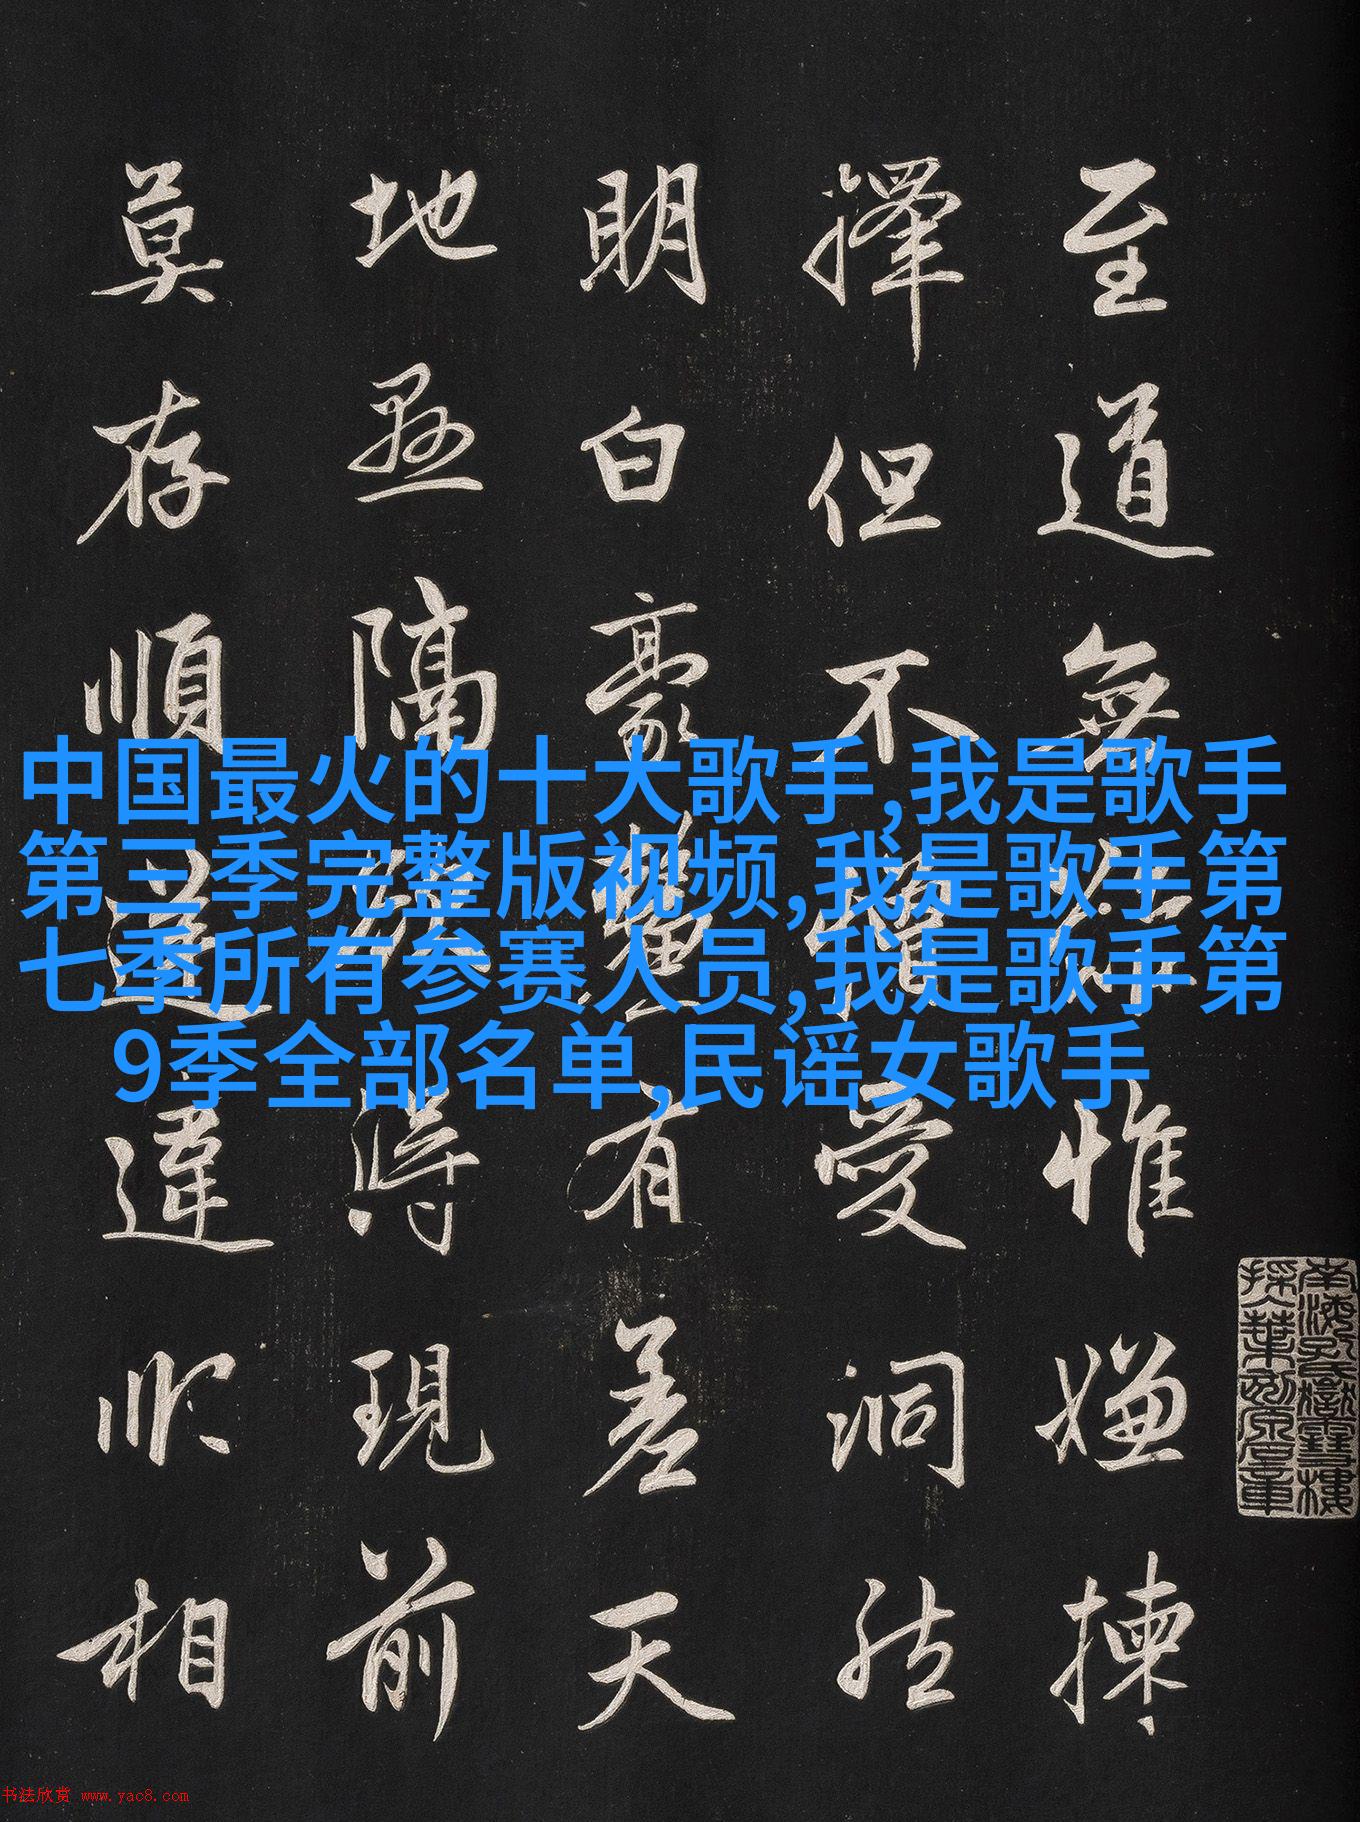 至道無難惟嫌揀
擇但不憎愛洞然
明白豪釐有差天
地懸隔欲得現前
莫存順逆違順相
中国最火的十大歌手,我是歌手
第三季完整版视频,我是歌手第
七季所有参赛人员,我是歌手第
9季全部名单,民谣女歌手
南海孔氏嶽雪樓
书法欣赏 www.yac8.com